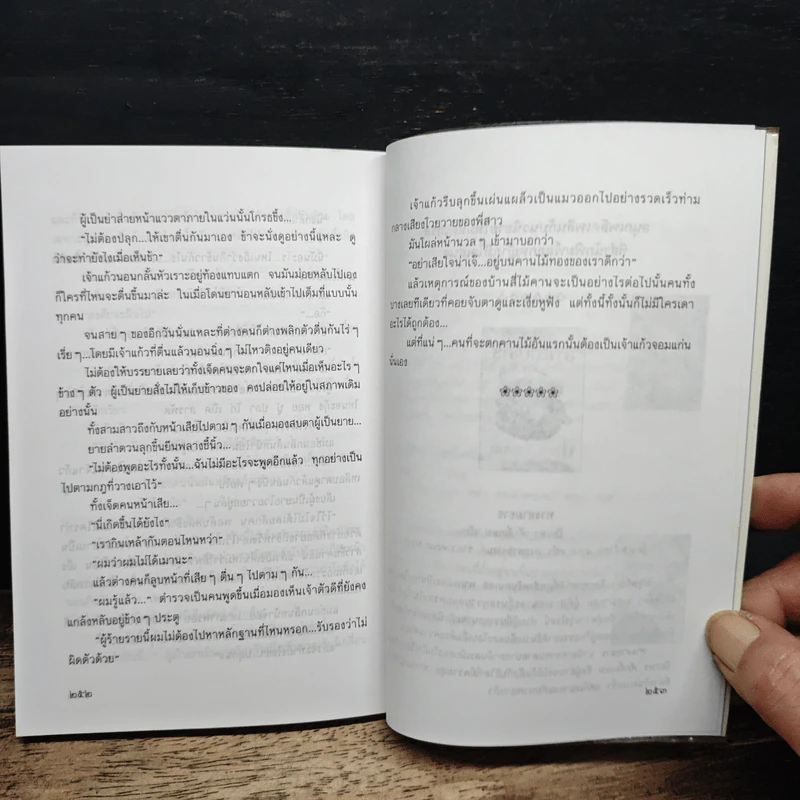 ผู้เป็นย่าส่ายหน้าแววตาภายในแว่นนั้นโกรธขึ้ง...
"ไม่ต้องปลุก...ให้เขาตื่นกันมาเอง ข้าจะนั่งดูอย่างนี้แหละ ดู
ว่าจะทำยังไงเมื่อเห็นข้า"
เจ้าแก้วนอนกลั้นหัวเราะอยู่ท้องแทบแตก จนมันม่อยหลับไปเอง
ก็ใครที่ไหนจะตื่นขึ้นมาล่ะ ในเมื่อโดนยานอนหลับเข้าไปเต็มที่แบบนั้น
ทุกคน
จนสาย ๆ ของอีกวันนั่นแหละที่ต่างคนก็ต่างพลิกตัวตื่นกันไร่ ๆ
เรี่ย ๆ...โดยมีเจ้าแก้วที่ตื่นแล้วนอนนิ่ง ๆ ไม่ไหวติงอยู่คนเดียว
ไม่ต้องให้บรรยายเลยว่าทั้งเจ็ดคนจะตกใจแค่ไหนเมื่อเห็นอะไร ๆ
ข้าง ๆ ตัว ผู้เป็นยายสั่งไม่ให้เก็บข้าวของ คงปล่อยให้อยู่ในสภาพเดิม
อย่างนั้น
ทั้งสามสาวถึงกับหน้าเสียไปตาม ๆ กันเมื่อมองสบตาผู้เป็นยาย...
ยายลำดวนลุกขึ้นยืนพลางชี้นิ้ว...
"ไม่ต้องพูดอะไรทั้งนั้น...ฉันไม่มีอะไรจะพูดอีกแล้ว ทุกอย่างเป็น
ไปตามกฎที่วางเอาไว้"
ทั้งเจ็ดคนหน้าเสีย...
"นี่เกิดขึ้นได้ยังไง"
"เรากินเหล้ากันตอนไหนหว่า"
"ผมว่าผมไม่ได้เมานะ"
แล้วต่างคนก็ลูบหน้าที่เสีย ๆ ตื่น ๆ ไปตาม ๆ กัน...
"ผมรู้แล้ว..." ตำรวจเป็นคนพูดขึ้นเมื่อมองเห็นเจ้าตัวดีที่ยังคง
แกล้งหลับอยู่ข้าง ๆ ประตู
"ผู้ร้ายรายนี้ผมไม่ต้องไปหาหลักฐานที่ไหนหรอก...รับรองว่าไม่
ผิดตัวด้วย"
๒๕๒
เจ้าแก้วรีบลุกขึ้นเผ่นแผล็วเป็นแมวออกไปอย่างรวดเร็วท่าม
กลางเสียงโวยวายของพี่สาว
มันโผล่หน้านวล ๆ เข้ามาบอกว่า
"อย่าเสียใจน่าเจ๊...อยู่บนคานไม้ทองของเราดีกว่า"
แล้วเหตุการณ์ของบ้านสี่ไม้คานจะเป็นอย่างไรต่อไปนั้นคนทั้ง
บางเลยทีเดียวที่คอยจับตาดูและเงี่ยหูฟัง แต่ทั้งนี้ทั้งนั้นก็ไม่มีใครเดา
อะไรได้ถูกต้อง...
แต่ที่แน่ ๆ...คนที่จะตกคานไม้อันแรกนั้นต้องเป็นเจ้าแก้วจอมแก่น
นั่นเอง
๒๕๓